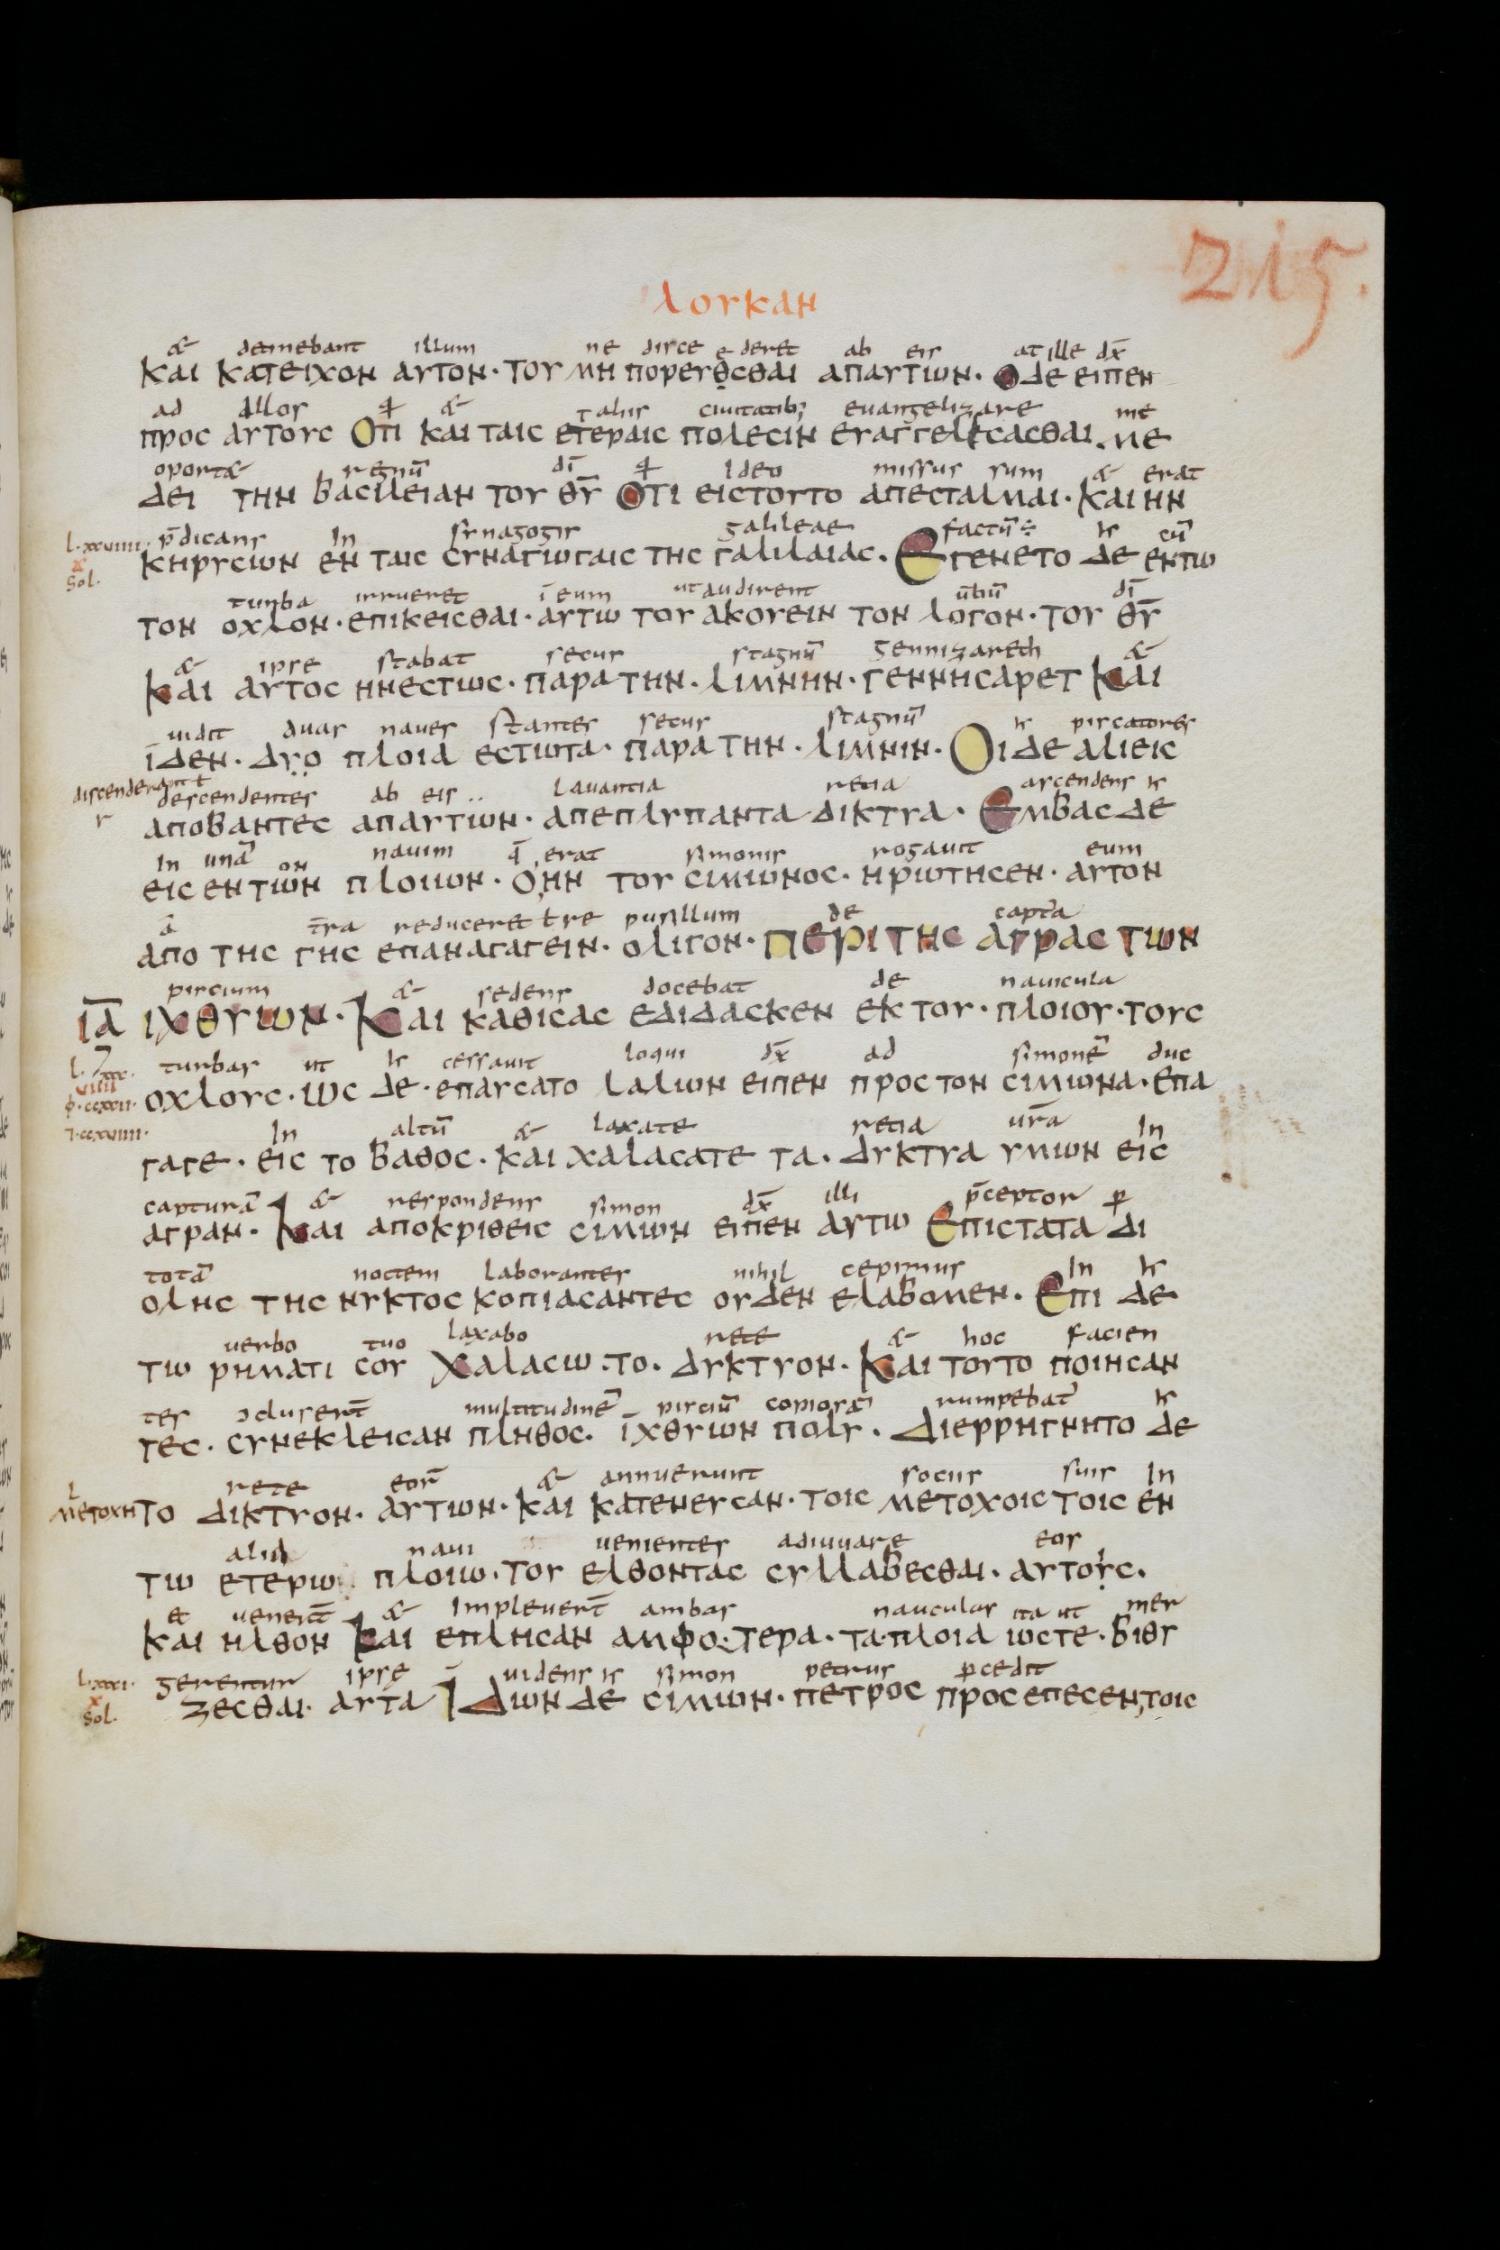 215.
λουκαν
& detinebant illum ne disce e deret ab eis at ille dx̄
και κατειχον αυτον· του μη πορευθεσθαι απαυτιων· Ο δε ειπεν
ad illos & aliis ciuitatib; euangelizare me
προς αυτους Οτι και ταις ετεραις πολεσιν ευαγγελισασθαι. με
oport& regnū dī ideo missus sum & erat
δει την βασιλειαν του θυ̅ Οτι εις τουτο απεσταλμαι· Και ην
l·xxviiii· p̄dicans In synagogis galileae factū÷ h cū
x
κηρυσιων εν ταις συναγιωγαις της γαλιλαιας. Εγενετο δε εντω
sol.
turba irrueret ī eum ut audirent ūbū dī
τον οχλον· επικεισθαι· αυτω του ακουειν τον λογον· του θυ̅
& ipse stabat secus stagnū gennizareth &
Και αυτος ηνεστιως· παρα την· λιμνην· γεννησαρετ Και
uidit duas naues stantes secus stagnū h piscatores
ϊδεν· δυο πλοια εστιωτα· παρα την· λιμνιν· Οι δε αλιεις
discenderant ł
descendentes ab eis .. lauantia retia ascendens h
r
αποβαντες απαυτιων· απεπλυπαντα δικτυα· Εμβας δε
In unā ον nauim q̄ erat simonis rogauit eum
εις εν τιων πλοιιων· Ο ην του σιμιωνος· ηριωτησεν· αυτον
ā t̄ra reduceret ł re pusillum de capta
απο της γης επαναγαγειν· ολιγον· Περι της αγρας των
piscium & sedens docebat de nauicula
ια̅ ιχθυιων· Και καθισας εδιδασκεν εκ του· πλοιου· τους
turbas ut h cessauit loqui dx̄ ad simonē duc
οχλους· ως δε· επαυσατο λαλιων ειπεν προς τον σιμιωνα· επα
In altū & laxate retia urā In
γαγε· εις το βαθος· και χαλασατε τα. δυκτυα υμιων εις
capturā & respondens simon dx̄ illi p̄ceptor p
αγραν· Και αποκριθεις σιμιων ειπεν αυτω Επιστατα δι
totā noctem laborantes nihil cepimus In h
ολης της νυκτος κοπιασαντες ουδεν ελαβομεν· Επι δε
uerbo tuo laxabo rete & hoc facien
τω ρηματι σου Χαλασιω· το· δυκτυον· Και τουτο ποιησαν
tes ɔcluserūt multitudinē pisciū copiosā rumpebat' h
τες· συνεκλεισαν πληθος· ϊχθυιων πολυ· Διερρηγνητο δε
rete eor̄ & annuerunt sociis suis In
μετοχη
το δικτυον· αυτιων· και κατενευσαν· τοις μετοχοις τοις εν
alia naui uenientes adiuuare eos
τιω ετεριω πλοιιω· του ελθοντας συλλαβεσθαι· αυτους.
et uenerūt & Impleuerūt ambas nauculas ita ut mer
και ηλθον Και επλησαν αμφοτερα· τα·πλοια ιωστε· βιθυ
l·xxxi· gerentur ipse uidens h simon petrus pcedit
x
ζεσθαι· αυτα Ιδιων δε σιμιων· πετρος προσεπεσεν, τοις
sol.